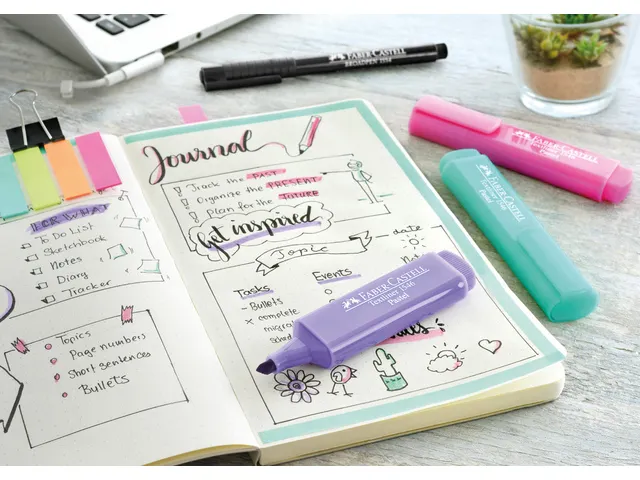 FOR WHAT
To Do List
Sketchbook
Notes
Diary
Tracker
Topics
Page numbers
Short sentences
Bullets
Journal
Track the PAST
Organize the PRESENT
Plan for the FUTURE
Get inspired
Topic
date
Tasks
Events
- Bullets
× complete
FABER-CASTELL
BROADPEN 1554
FABER-CASTELL
Textliner 1546
Pastel
FABER-CASTELL
Textliner 1546
Pastel
FABER-CASTELL
Textliner 1546
Pastel